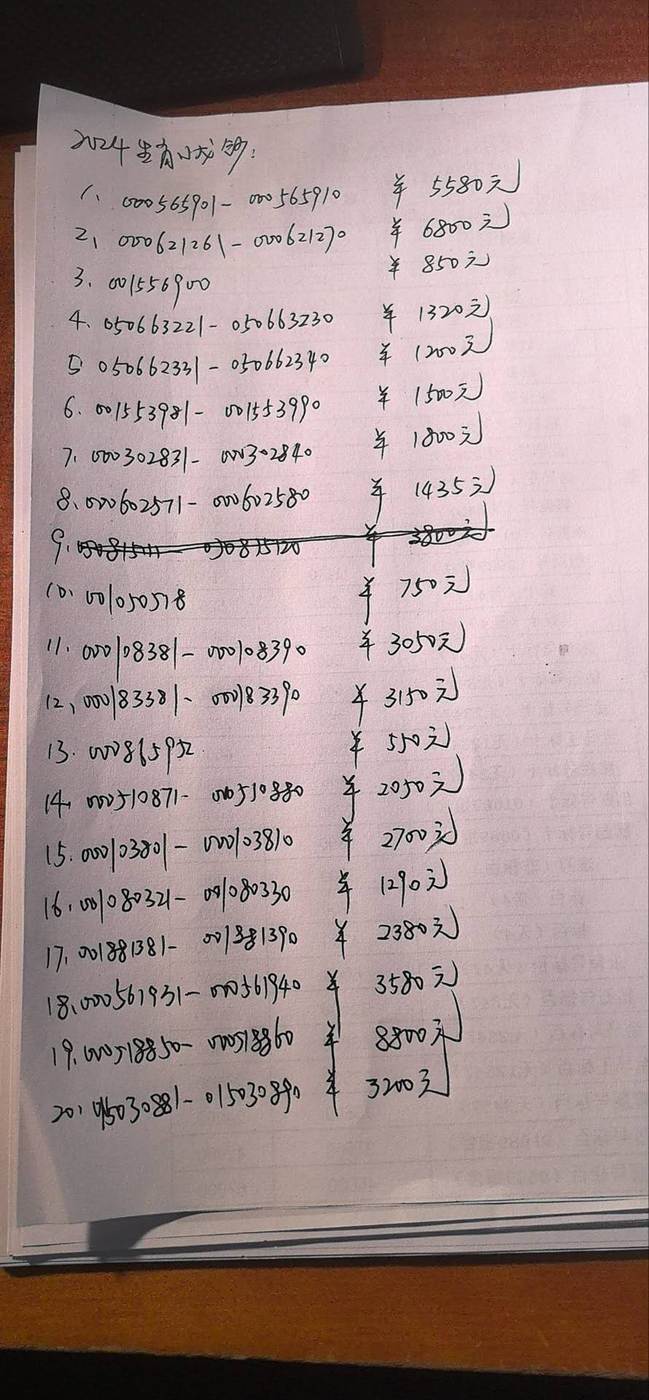 2024生肖小龙钞:
1、000565901- 000565910 ¥ 5580元
2、000621261-000621270 ¥ 6800元
3.001556900 ¥ 850元
4.050663221-050663230 ¥ 1320元
5 050662331-050662340 ¥ 1200元
6.001553981-001553990 ¥ 1500元
7.000302831- 000302840 ¥ 1800元
8.000602571-000602580 ¥ 1435元
9. ¥ 3800元
10.001050578 ¥ 750元
11.000108381-000108390 ¥ 3050元
12、000183381- 000183390 ¥ 3150元
13.000865952 ¥ 550元
14.000510871-000510880 ¥ 2050元
15.000103801-000103810 ¥ 2700元
16.001080321-001080330 ¥ 1290元
17.001881381-001881390 ¥ 2380元
18.000561931-000561940 ¥ 3580元
19.000518850-000518860 ¥ 8800元
20.015030881-015030890 ¥ 3200元